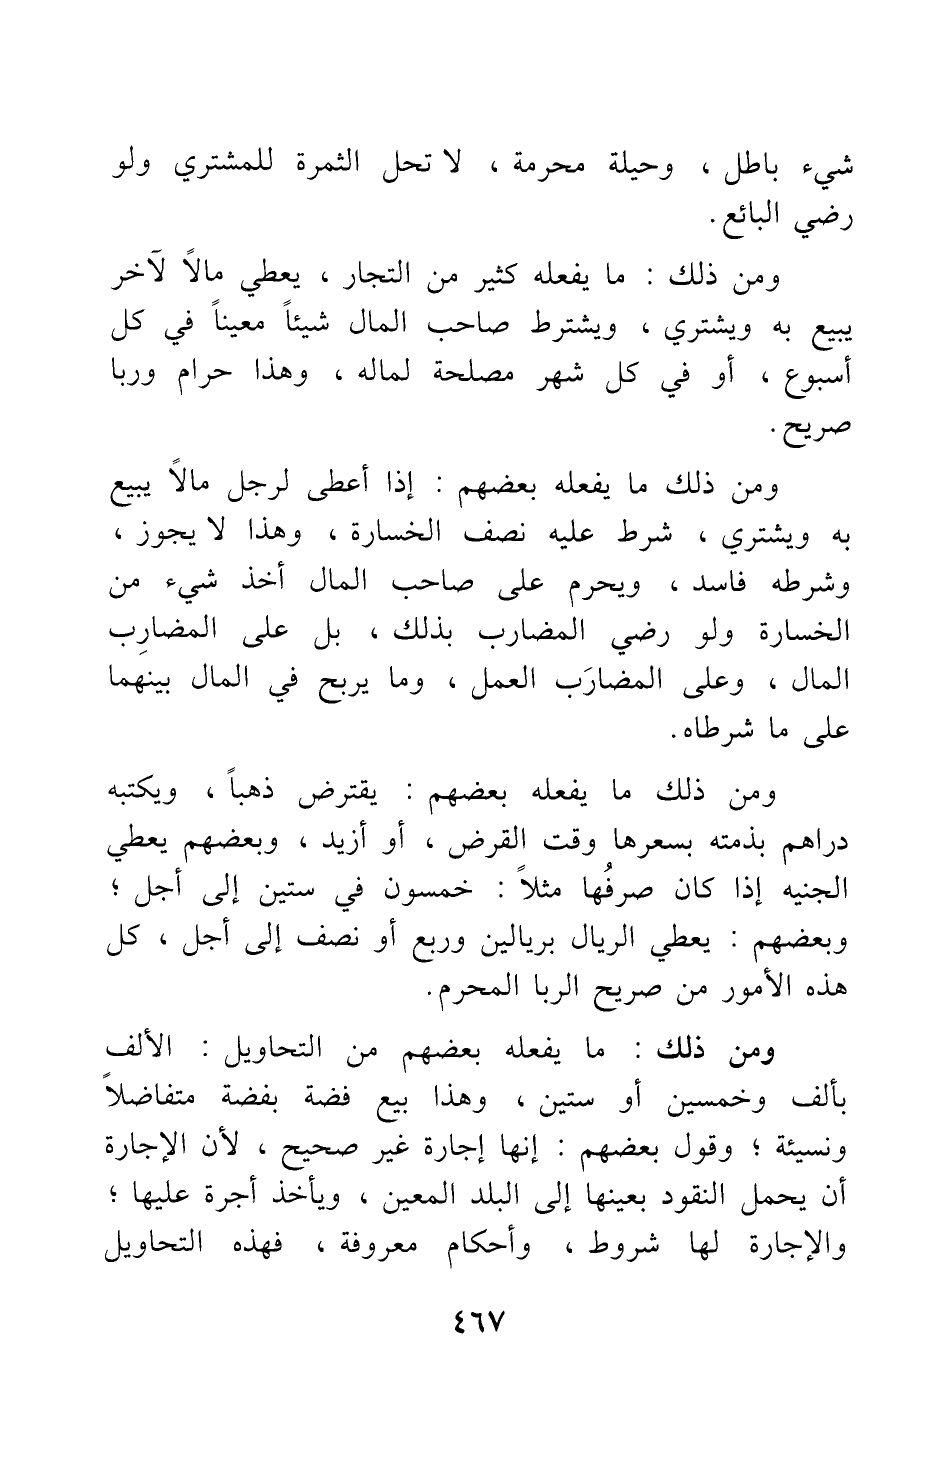 شيء باطل ، وحيلة محرمة ، لا تحل الثمرة للمشتري ولو
رضي البائع .
ومن ذلك : ما يفعله كثير من التجار ، يعطي مالاً لآخر
يبيع به ويشتري ، ويشترط صاحب المال شيئاً معيناً في كل
أسبوع ، أو في كل شهر مصلحة لماله ، وهذا حرام وربا
صريح .
ومن ذلك ما يفعله بعضهم : إذا أعطى لرجل مالاً يبيع
به ويشتري ، شرط عليه نصف الخسارة ، وهذا لا يجوز ،
وشرطه فاسد ، ويحرم على صاحب المال أخذ شيء من
الخسارة ولو رضي المضارب بذلك ، بل على المضارِب
المال ، وعلى المضارَب العمل ، وما يربح في المال بينهما
على ما شرطاه .
ومن ذلك ما يفعله بعضهم : يقترض ذهباً ، ويكتبه
دراهم بذمته بسعرها وقت القرض ، أو أزيد ، وبعضهم يعطي
الجنيه إذا كان صرفُها مثلاً : خمسون في ستين إلى أجل ؛
وبعضهم : يعطي الريال بريالين وربع أو نصف إلى أجل ، كل
هذه الأمور من صريح الربا المحرم .
ومن ذلك : ما يفعله بعضهم من التحاويل : الألف
بألف وخمسين أو ستين ، وهذا بيع فضة بفضة متفاضلاً
ونسيئة ؛ وقول بعضهم : إنها إجارة غير صحيح ، لأن الإجارة
أن يحمل النقود بعينها إلى البلد المعين ، ويأخذ أجرة عليها ؛
والإجارة لها شروط ، وأحكام معروفة ، فهذه التحاويل
٤٦٧